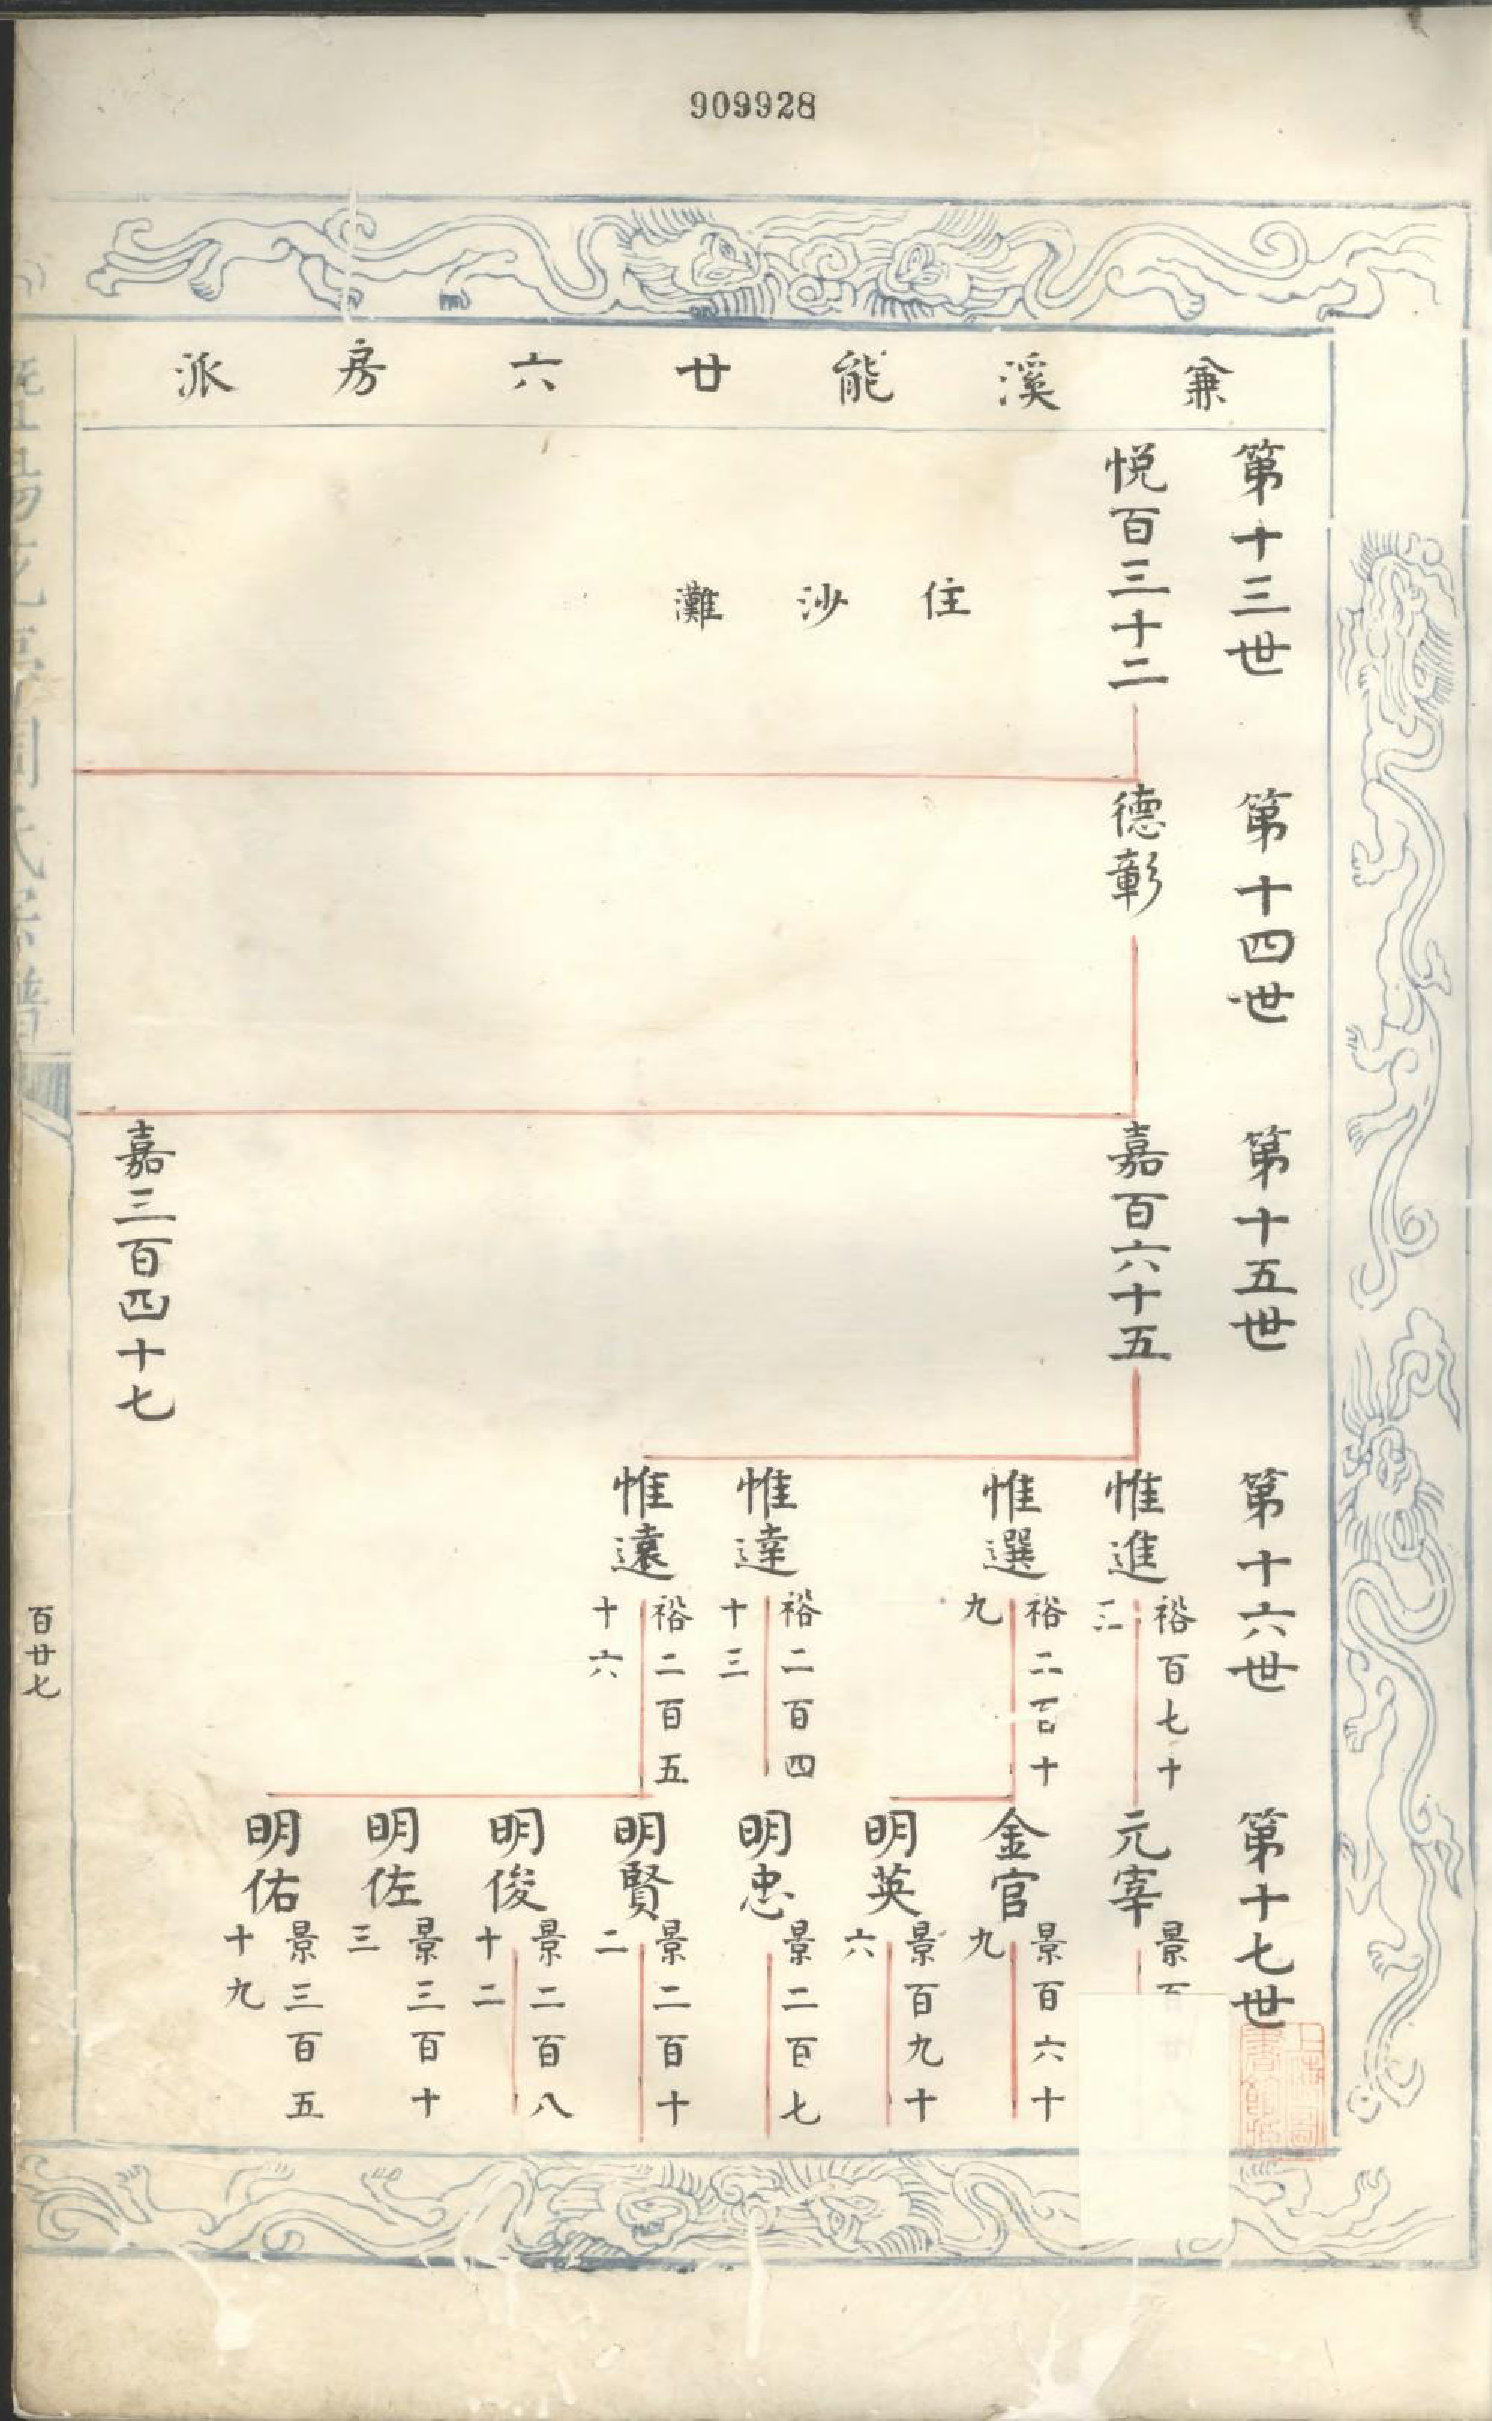 909928
兼溪能廿六房派
第十三世
悦百三十二
住沙灘
第十四世
德彰
第十五世
嘉百六十五
嘉三百四十七
第十六世
惟進
裕百七十
三
惟選
裕二百十
九
惟達
裕二百四
十三
惟遠
裕二百五
十六
第十七世
元宰
景百
金官
景百六十
九
明英
景百九十
六
明忠
景二百七
明賢
景二百十
二
明俊
景二百八
十二
明佐
景三百十
三
明佑
景三百五
十九
百廿七